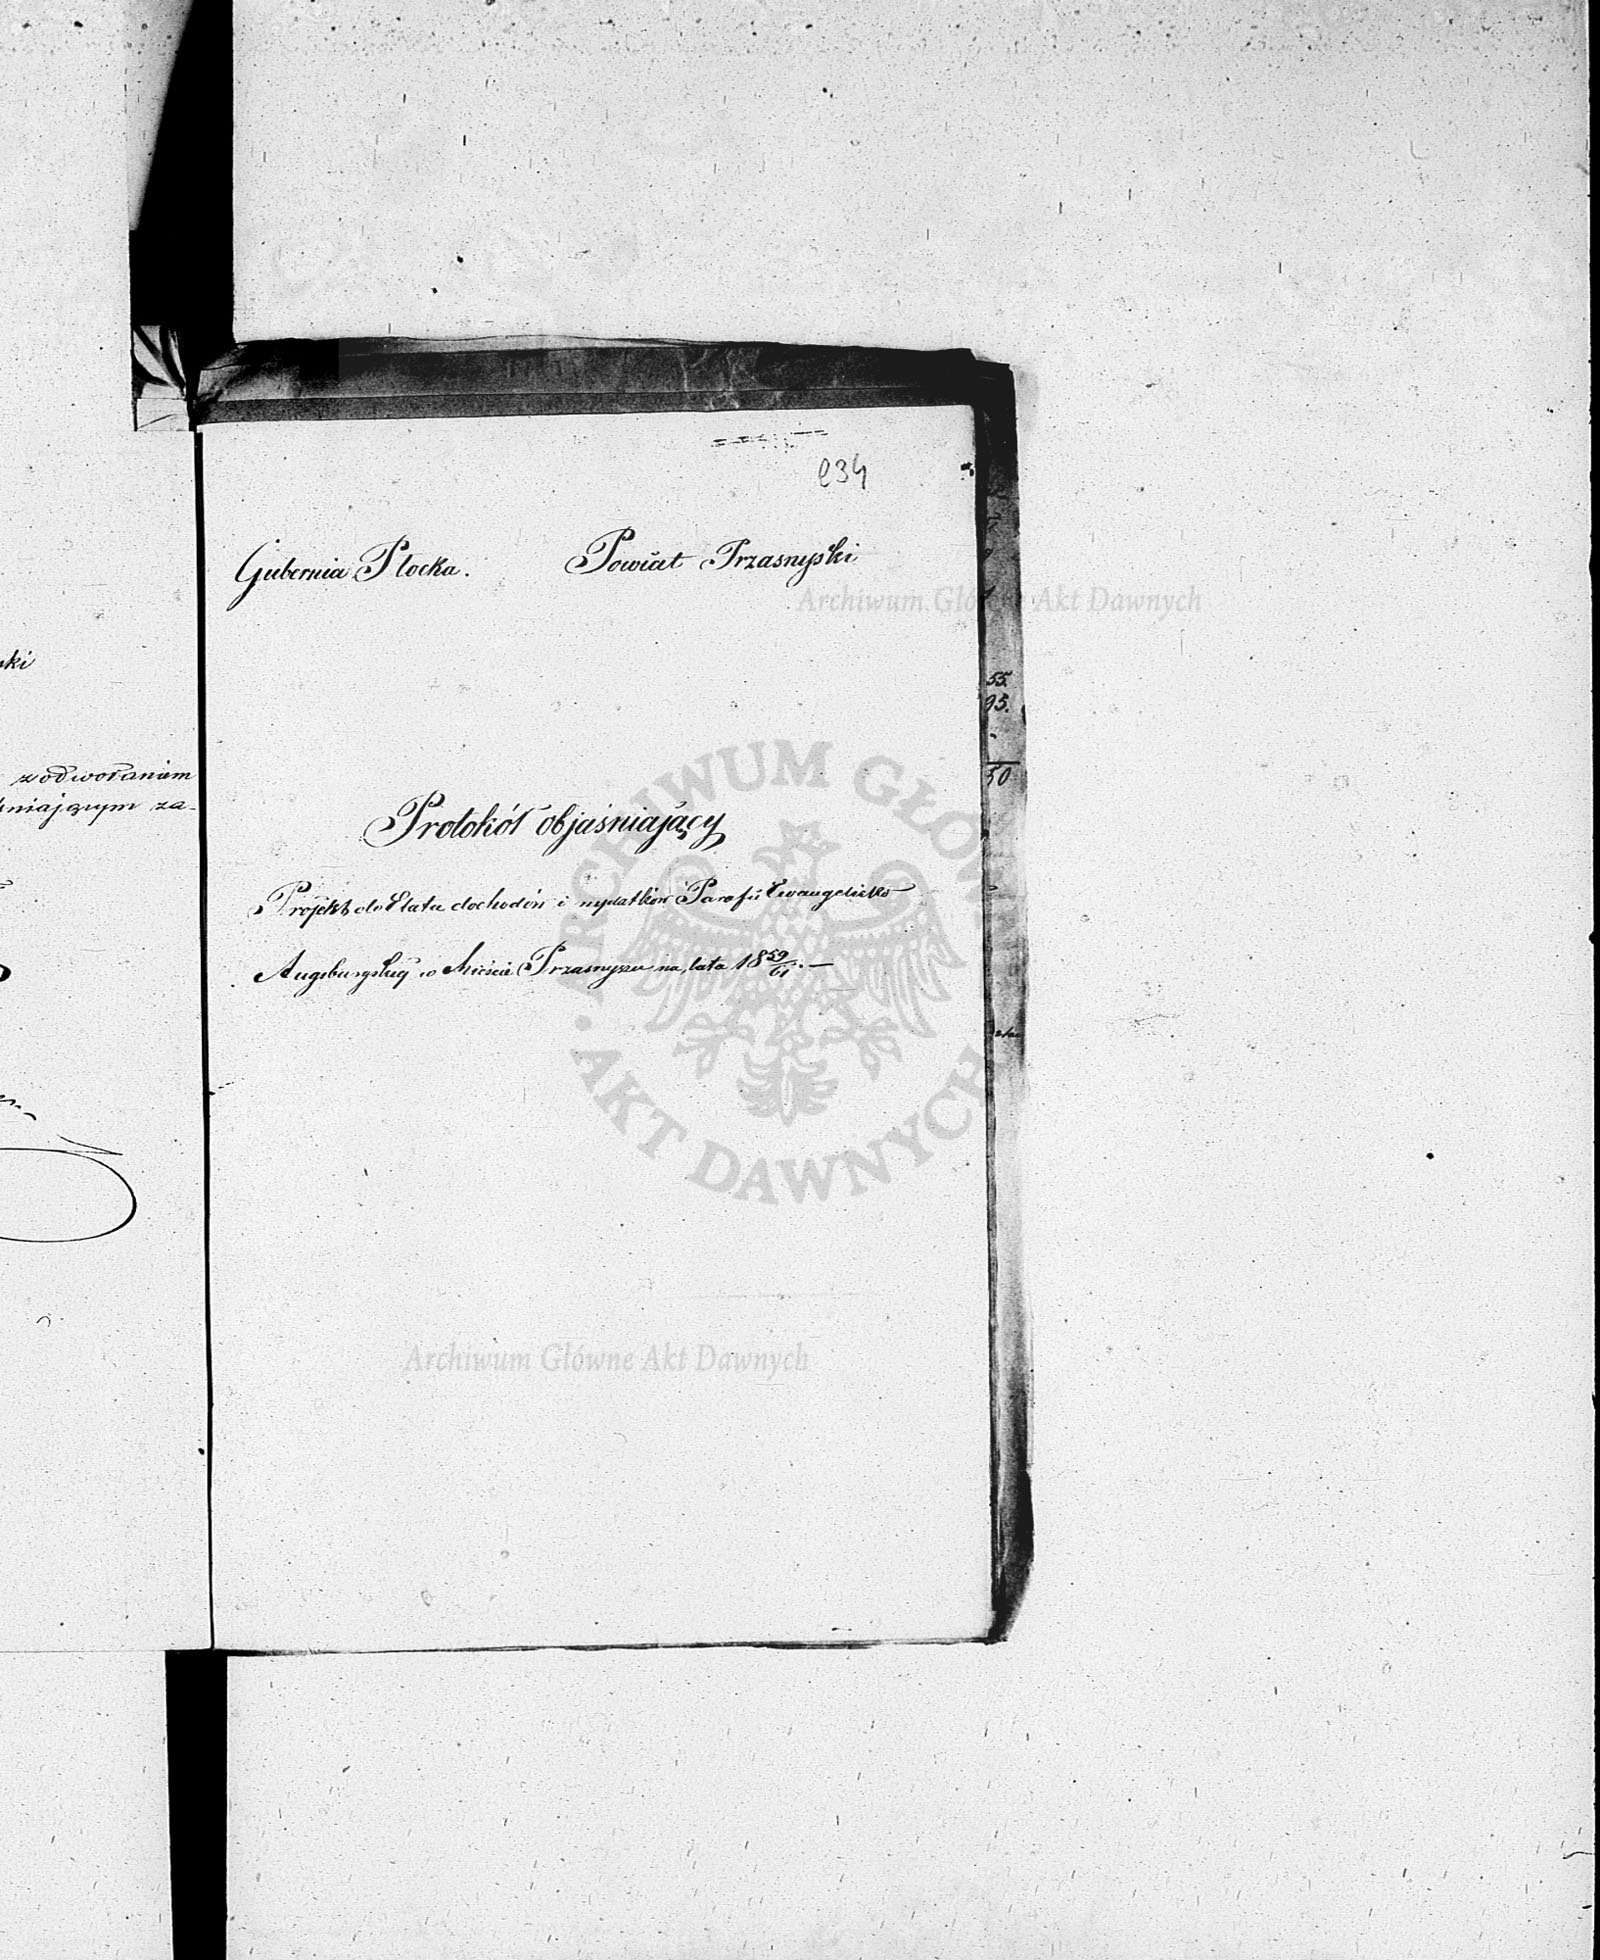 234
Gubernia Płocka. Powiat Przasnyski
Protokół objaśniający
Projekt do Etatu dochodów i wydatków Parafii Ewangelicko
Augsburgskiej w Mieście Przasnyszu na lata 18 59/61. —
ski
z odwołaniem
śniającym za-
55.
95.
50
Archiwum Główne Akt Dawnych
ARCHIWUM GŁÓWNE · AKT DAWNYCH
Archiwum Główne Akt Dawnych